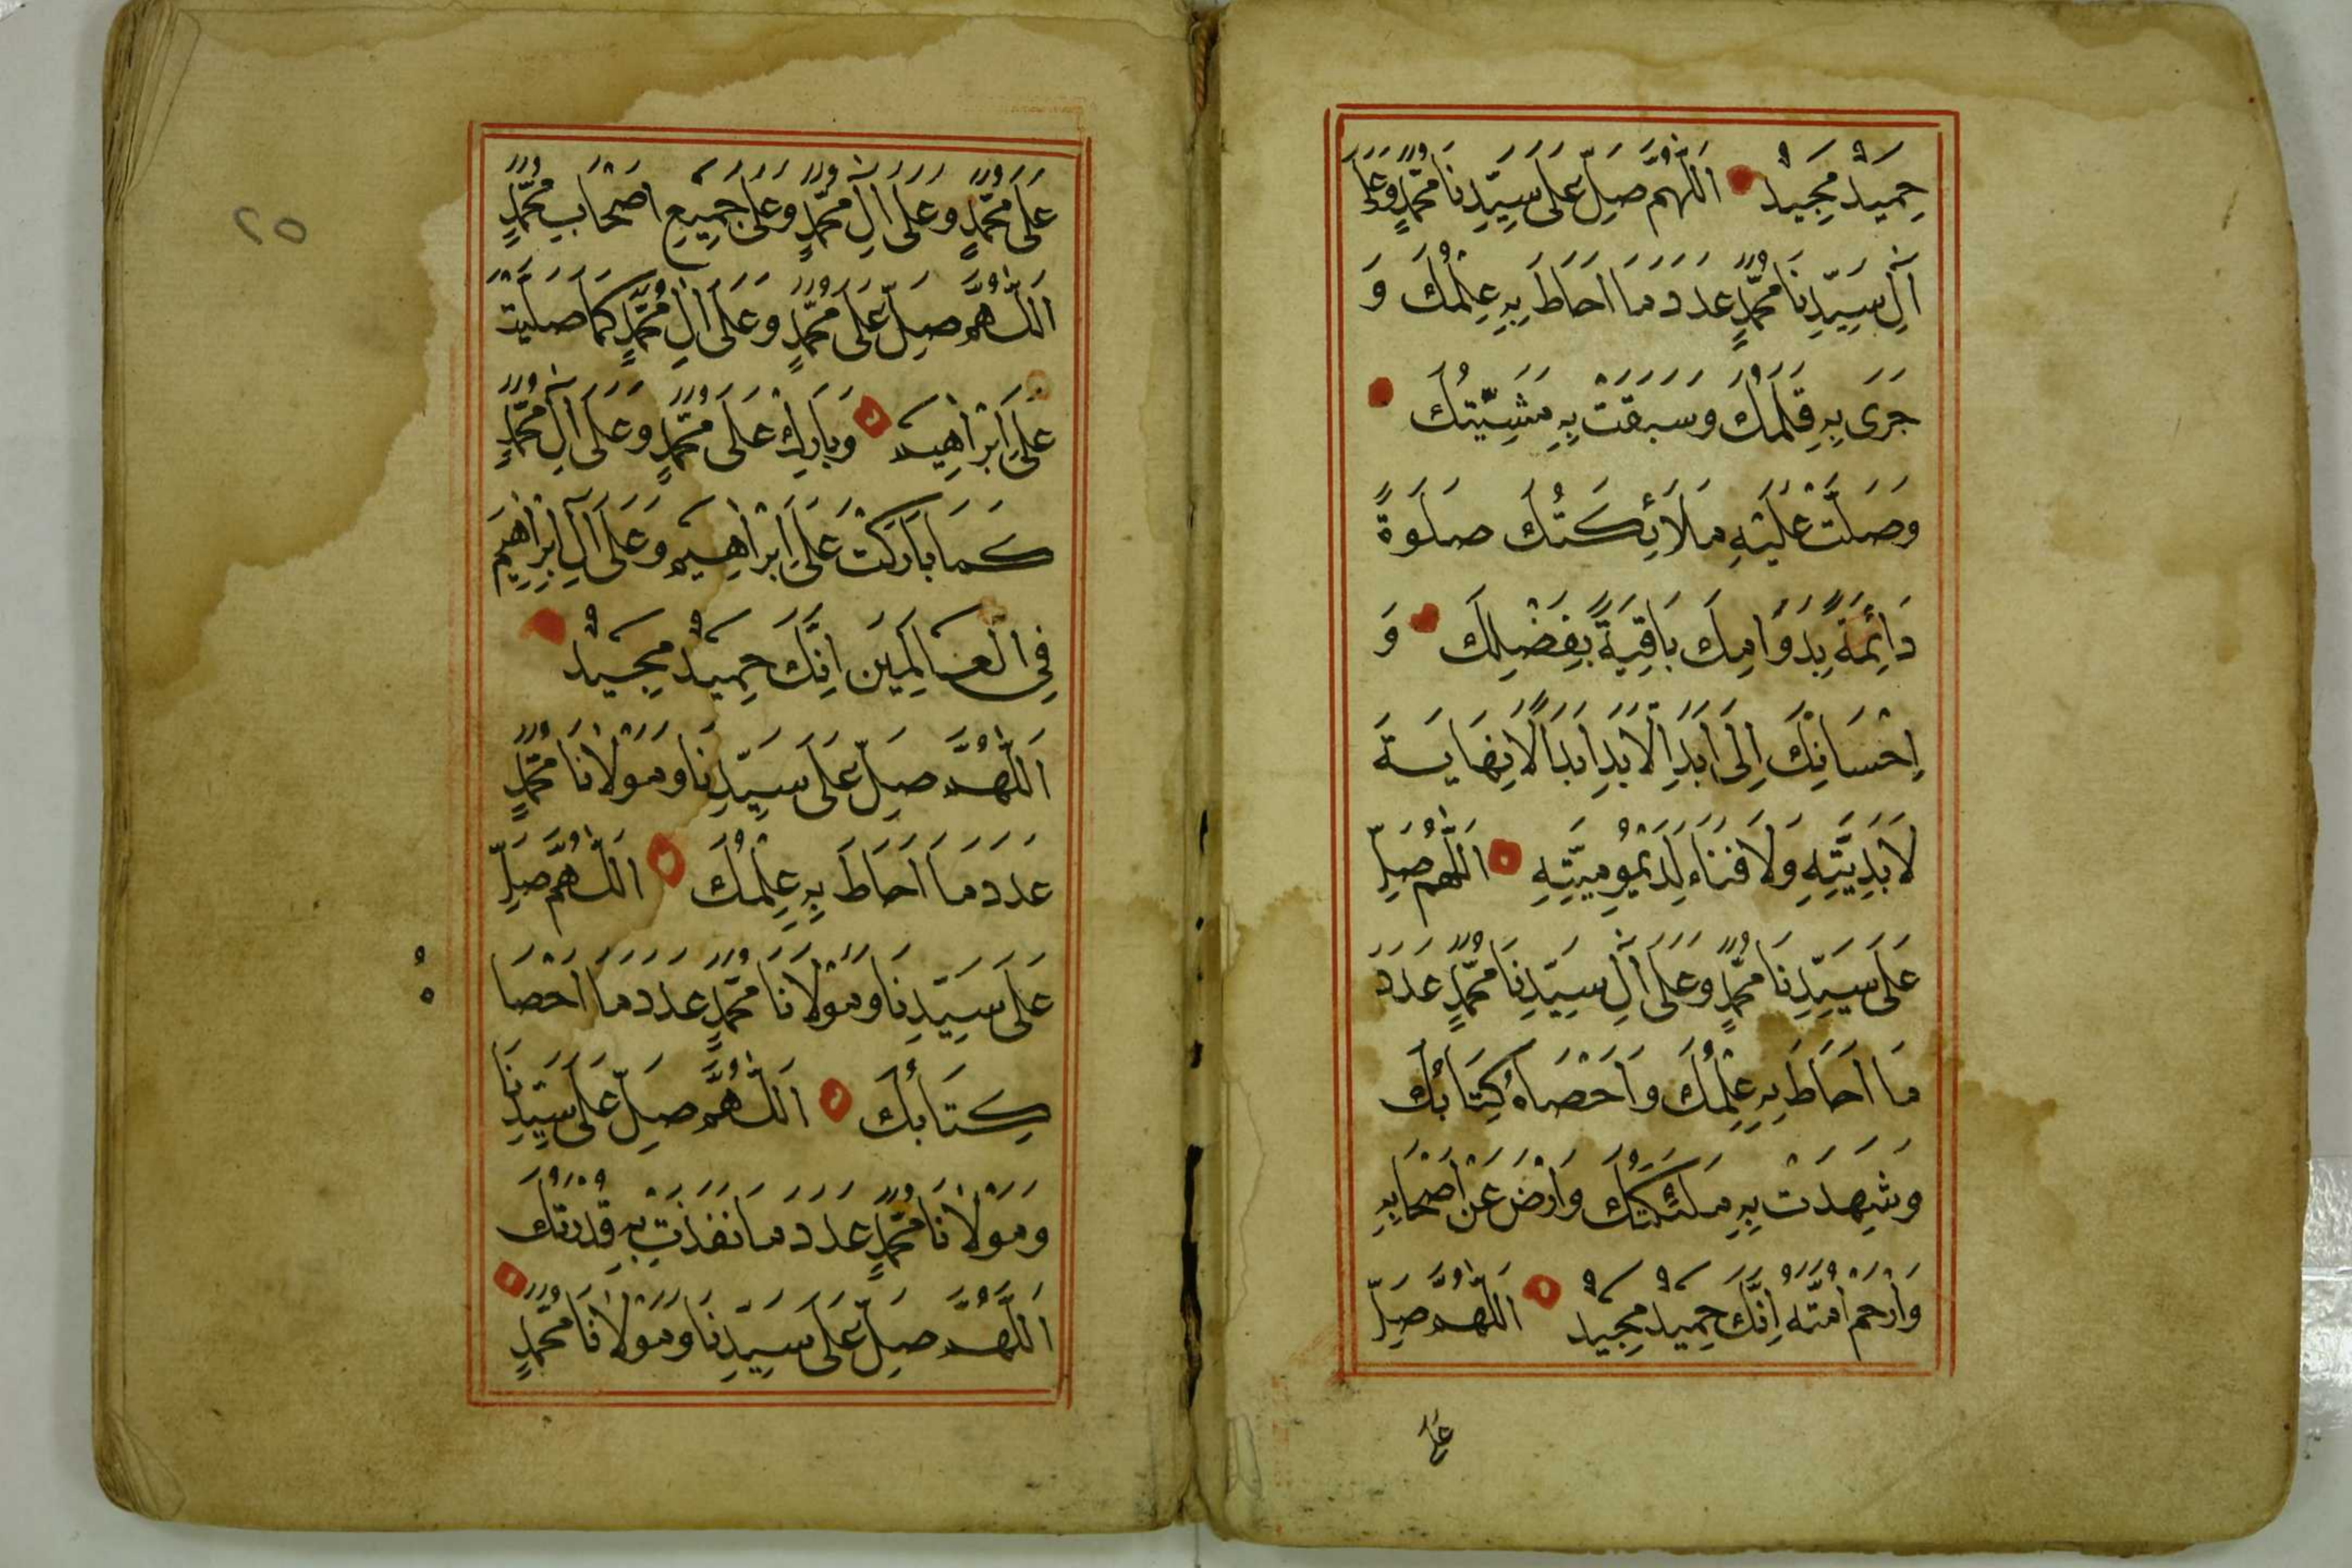 حَمِيدٌ مَجِيدٌ اَللّٰهُمَّ صَلِّ عَلَى سَيِّدِنَا مُحَمَّدٍ وَعَلَى
اٰلِ سَيِّدِنَا مُحَمَّدٍ عَدَدَ مَا اَحَاطَ بِهِ عِلْمُكَ وَ
جَرَى بِهِ قَلَمُكَ وَسَبَقَتْ بِهِ مَشِيَّتُكَ
وَصَلَّتْ عَلَيْهِ مَلَائِكَتُكَ صَلَوةً
دَائِمَةً بِدَوَامِكَ بَاقِيَةً بِفَضْلِكَ وَ
اِحْسَانِكَ اِلَى اَبَدِ الْاَبَدِ اَبَدًا لَانِهَايَةَ
لِاَبَدِيَّتِهِ وَلَا فَنَاءَ لِدَيْمُومِيَّتِهِ اَللّٰهُمَّ صَلِّ
عَلَى سَيِّدِنَا مُحَمَّدٍ وَعَلَى اٰلِ سَيِّدِنَا مُحَمَّدٍ عَدَدَ
مَا اَحَاطَ بِهِ عِلْمُكَ وَاَحْصَاهُ كِتَابُكَ
وَشَهِدَتْ بِهِ مَلٰئِكَتُكَ وَارْضَ عَنْ اَصْحَابِهِ
وَارْحَمْ اُمَّتَهُ اِنَّكَ حَمِيدٌ مَجِيدٌ اَللّٰهُمَّ صَلِّ
عَلَى
٢٥
عَلَى مُحَمَّدٍ وَعَلَى اٰلِ مُحَمَّدٍ وَعَلَى جَمِيعِ اَصْحَابِ مُحَمَّدٍ
اَللّٰهُمَّ صَلِّ عَلَى مُحَمَّدٍ وَعَلَى اٰلِ مُحَمَّدٍ كَمَا صَلَّيْتَ
عَلَى اِبْرَاهِيمَ وَبَارِكْ عَلَى مُحَمَّدٍ وَعَلَى اٰلِ مُحَمَّدٍ
كَمَا بَارَكْتَ عَلَى اِبْرَاهِيمَ وَعَلَى اٰلِ اِبْرَاهِيمَ
فِي الْعَالَمِينَ اِنَّكَ حَمِيدٌ مَجِيدٌ
اَللّٰهُمَّ صَلِّ عَلَى سَيِّدِنَا وَمَوْلَانَا مُحَمَّدٍ
عَدَدَ مَا اَحَاطَ بِهِ عِلْمُكَ اَللّٰهُمَّ صَلِّ
عَلَى سَيِّدِنَا وَمَوْلَانَا مُحَمَّدٍ عَدَدَ مَا اَحْصَا
كِتَابُكَ اَللّٰهُمَّ صَلِّ عَلَى سَيِّدِنَا
وَمَوْلَانَا مُحَمَّدٍ عَدَدَ مَا نَفَذَتْ بِهِ قُدْرَتُكَ
اَللّٰهُمَّ صَلِّ عَلَى سَيِّدِنَا وَمَوْلَانَا مُحَمَّدٍ